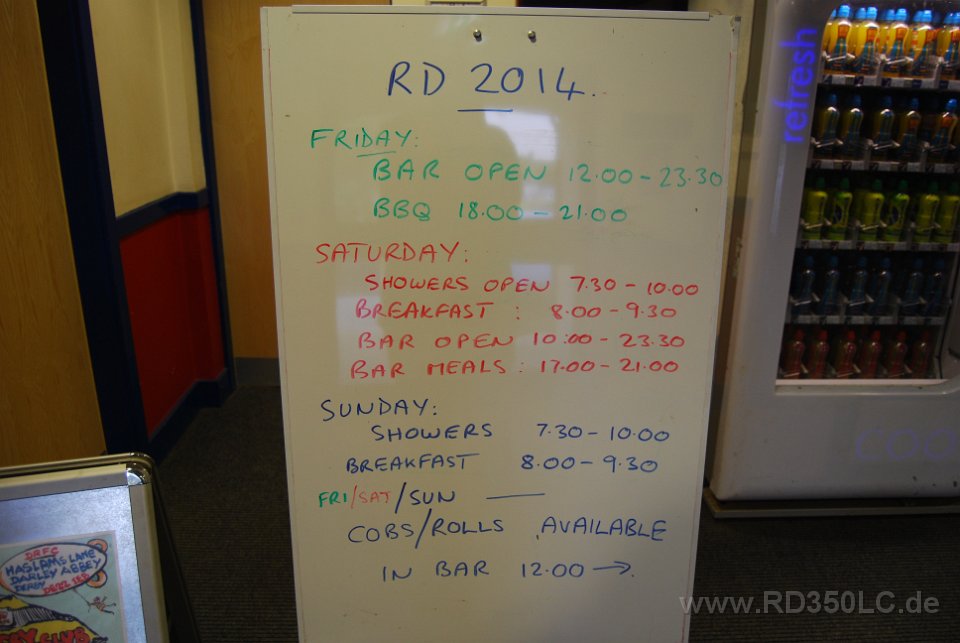 RD 2014.
FRIDAY:
BAR OPEN 12.00 - 23.30
BBQ 18.00 - 21.00
SATURDAY:
SHOWERS OPEN 7.30 - 10.00
BREAKFAST : 8.00 - 9.30
BAR OPEN 10:00 - 23.30
BAR MEALS : 17.00 - 21.00
SUNDAY:
SHOWERS 7.30 - 10.00
BREAKFAST 8.00 - 9.30
FRI/SAT/SUN —
COBS/ROLLS AVAILABLE
IN BAR 12.00 →.
refresh
COO
DRFC
HASLAMS LANE
DARLEY ABBEY
DERBY DE22 1EB
CLUB
www.RD350LC.de